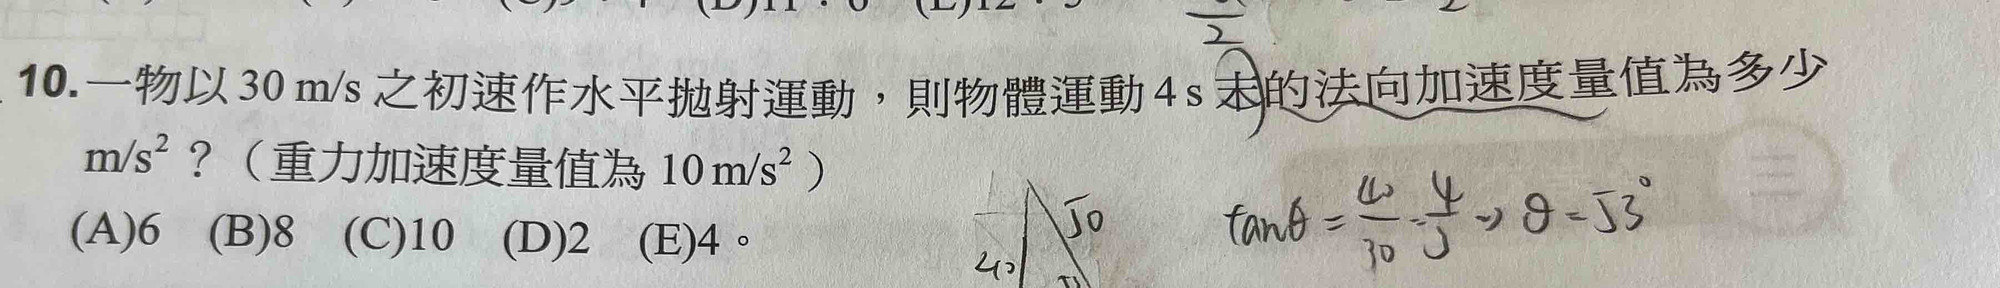 2
10.一物以 30 m/s 之初速作水平拋射運動，則物體運動 4 s 末的法向加速度量值為多少
m/s² ？（重力加速度量值為 10 m/s² ）
(A)6 (B)8 (C)10 (D)2 (E)4。
50
40
tanθ = 40/30 = 4/3 → θ = 53°